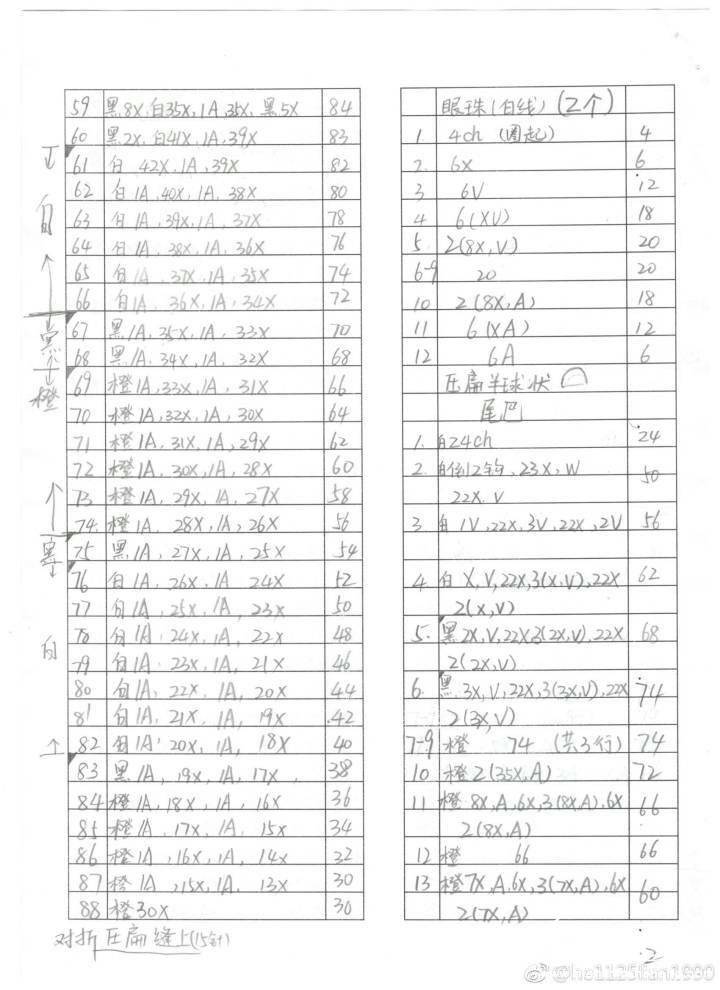 59 黑8X,白35X,1A,35X,黑5X 84
60 黑2X,白41X,1A,39X 83
61 白 42X,1A,39X 82
62 白1A,40X,1A,38X 80
63 白1A,39X,1A,37X 78
64 白1A,38X,1A,36X 76
65 白1A,37X,1A,35X 74
66 白1A,36X,1A,34X 72
67 黑1A,35X,1A,33X 70
68 黑1A,34X,1A,32X 68
69 橙1A,33X,1A,31X 66
70 橙1A,32X,1A,30X 64
71 橙1A,31X,1A,29X 62
72 橙1A,30X,1A,28X 60
73 橙1A,29X,1A,27X 58
74 橙1A,28X,1A,26X 56
75 黑1A,27X,1A,25X 54
76 白1A,26X,1A 24X 52
77 白1A,25X,1A,23X 50
78 白1A,24X,1A,22X 48
79 白1A,23X,1A,21X 46
80 白1A,22X,1A,20X 44
81 白1A,21X,1A,19X 42
82 白1A,20X,1A,18X 40
83 黑1A,19X,1A,17X, 38
84 橙1A,18X,1A,16X 36
85 橙1A,17X,1A,15X 34
86 橙1A,16X,1A,14X 32
87 橙1A,15X,1A,13X 30
88 橙30X 30
对折压扁缝上(15针)
白
黑
橙
黑
白
眼珠(白线)(2个)
1 4ch (圈起) 4
2. 6X 6
3 6V 12
4 6(XV) 18
5. 2(8X,V) 20
6-9 20 20
10 2(8X,A) 18
11 6(XA) 12
12 6A 6
压扁半球状
尾巴
1. 白24ch 24
2. 白倒2钩,23X,W 50
22X,V
3 白1V,22X,3V,22X,2V 56
4 白X,V,22X,3(X,V),22X 62
2(X,V)
5. 黑2X,V,22X3(2X,V),22X 68
2(2X,V)
6. 黑3X,V,22X,3(3X,V),22X 74
2(3X,V)
7-9 橙 74 (共3行) 74
10 橙2(35X,A) 72
11 橙8X,A,6X,3(8X,A),6X 66
2(8X,A)
12 橙 66 66
13 橙7X,A,6X,3(7X,A),6X 60
2(7X,A)
2